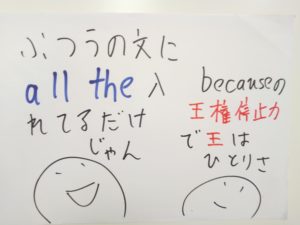 ふつうの文に
all the 入
れてるだけ
じゃん
becauseの
王権停止力
で王は
ひとりさ